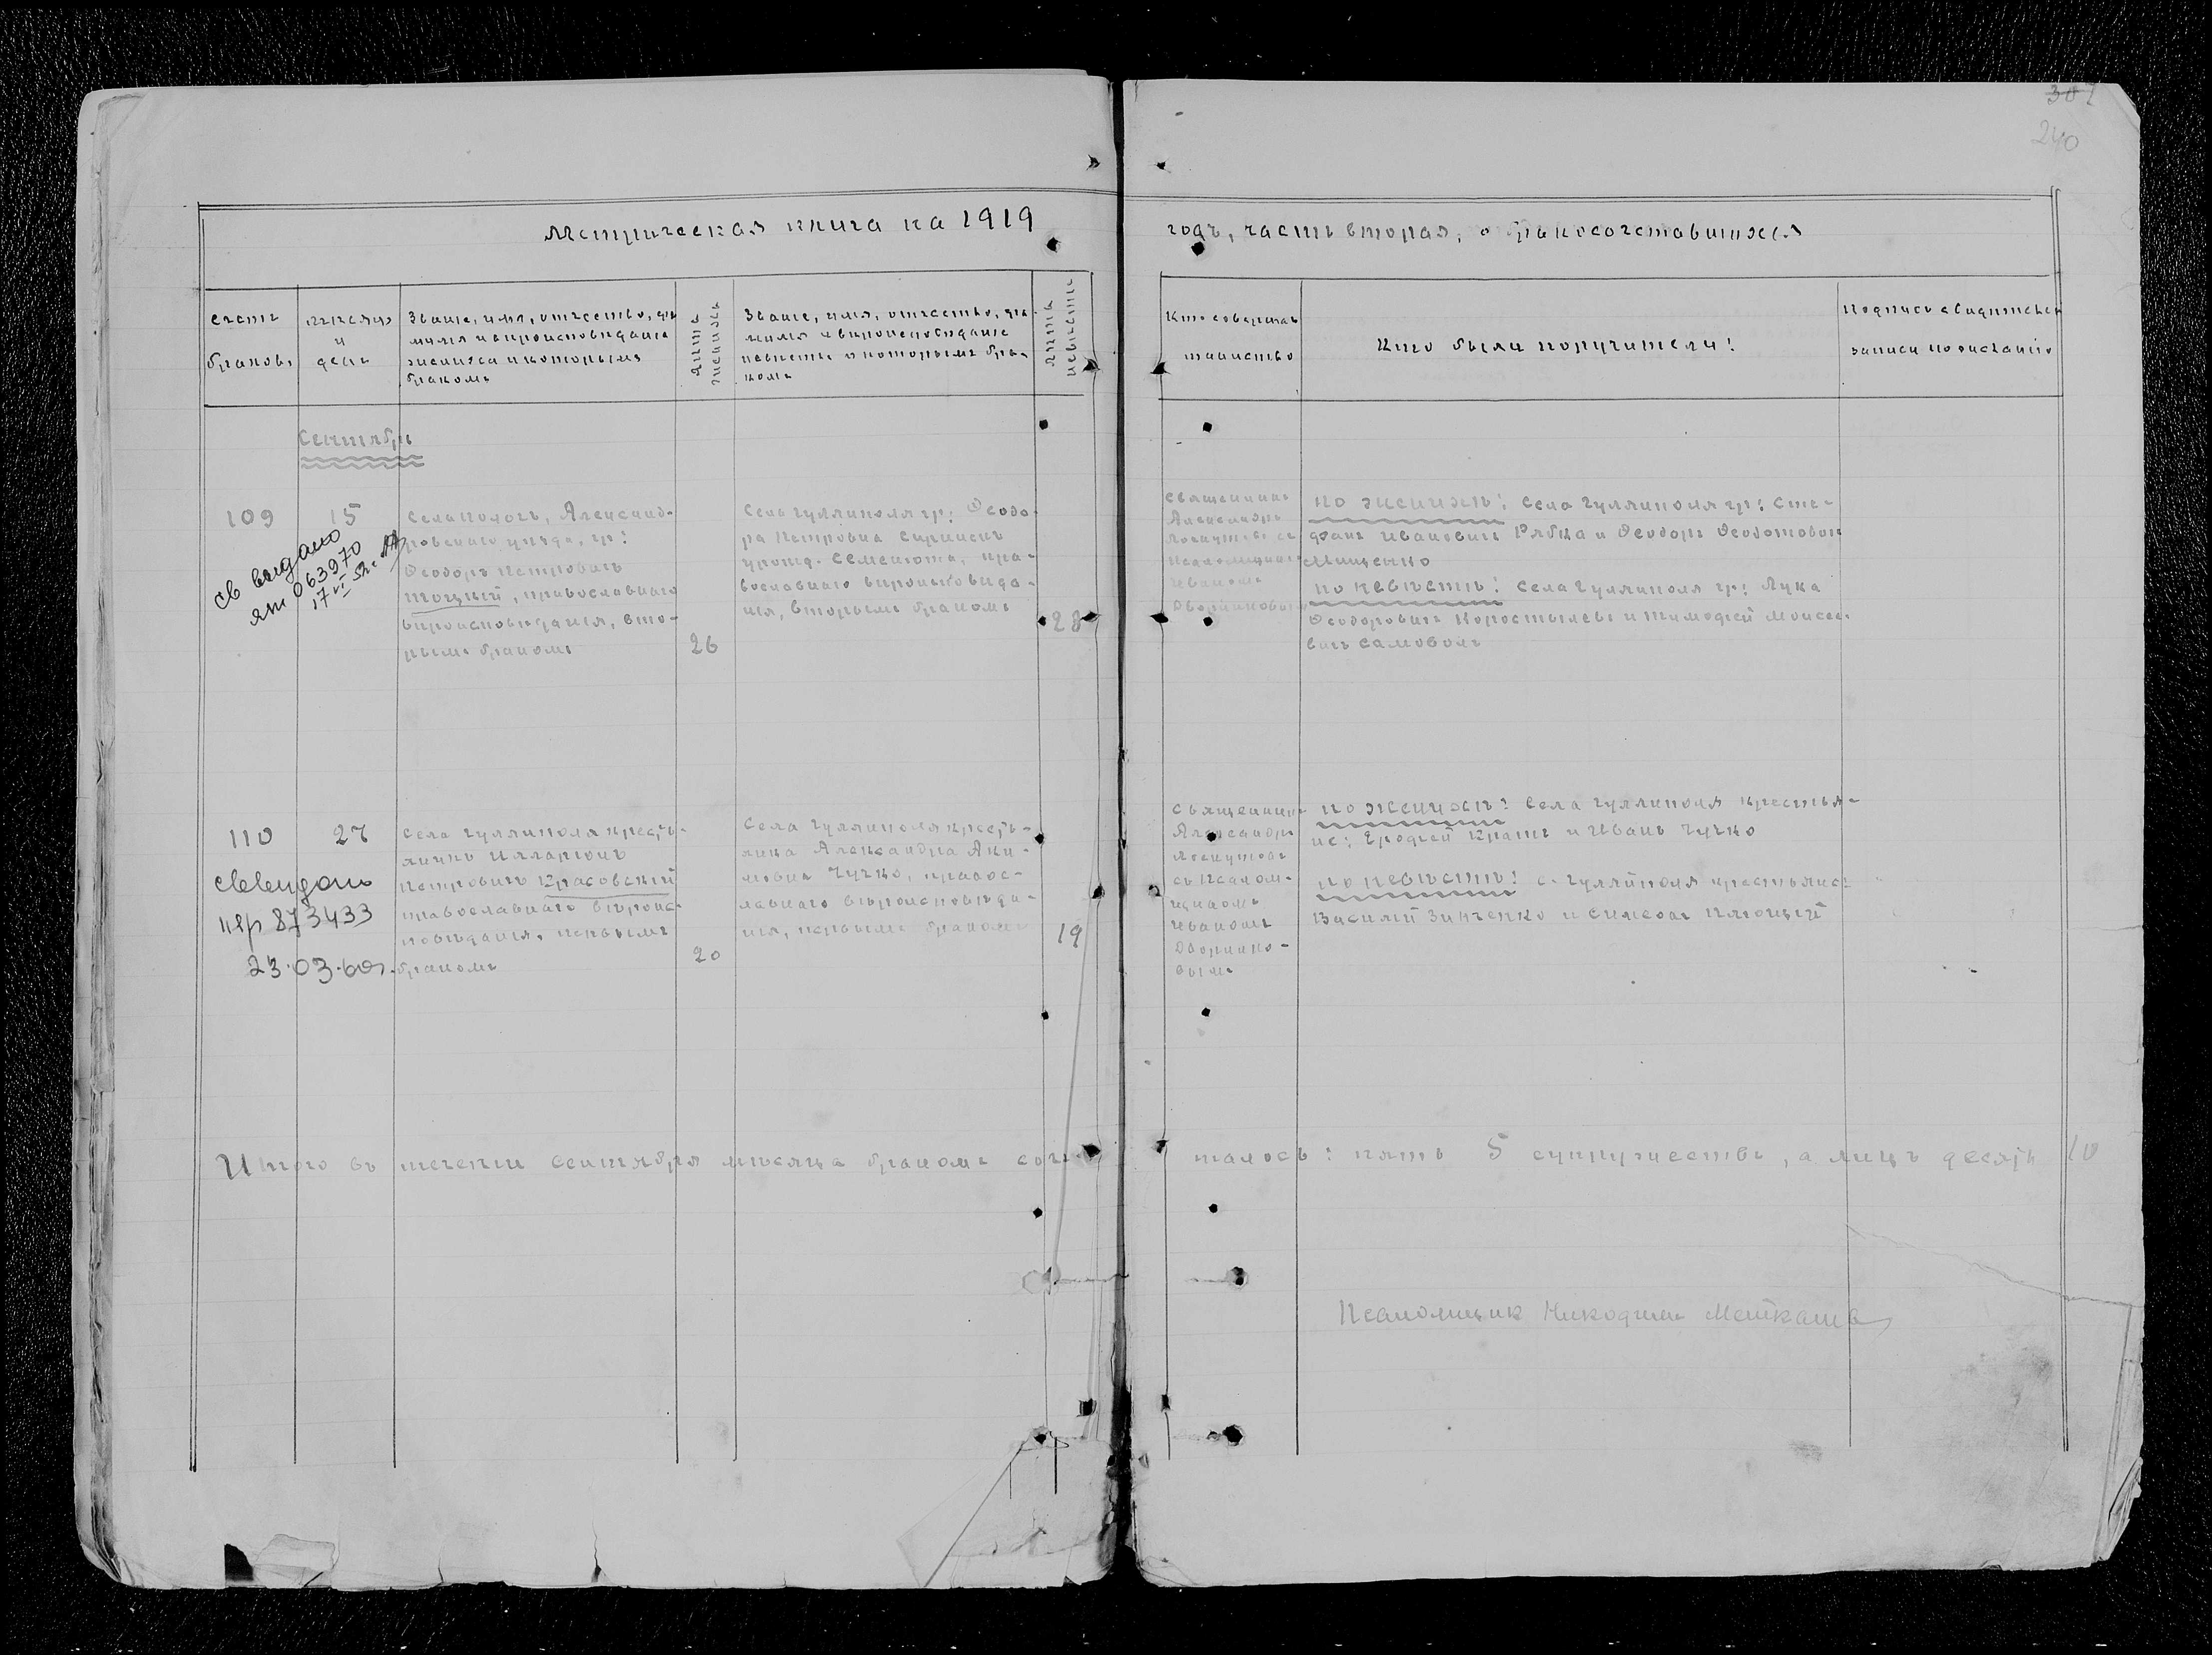 302
240
Метрическая книга на 1919
годъ, часть вторая, о бракосочетавшихся
Счетъ браковъ
мѣсяцъ и день
Званіе, имя, отчество, фамилія и вѣроисповѣданіе жениха и которымъ бракомъ
Лѣта жениха
Званіе, имя, отчество, фамилія и вѣроисповѣданіе невѣсты и которымъ бракомъ
Лѣта невѣсты
Кто совершалъ таинство
Кто были поручители:
Подпись свидѣтелей записи по желанію
Сентябрь
109
15
Св выдано
ЯТ 063970
17 VI 52г.
Села Пологъ, Александ-
ровскаго уѣзда, гр:
Ѳеодоръ Петровичъ
православнаго
вѣроисповѣданія, вто-
рымъ бракомъ
26
Села Гуляйполя гр: Ѳеодо-
ра Петровна
урожд. Семенюта, пра-
вославнаго вѣроисповѣда-
нія, вторымъ бракомъ
28
Священникъ
Александръ
Иваномъ
по женихѣ: Села Гуляйполя гр: Сте-
фанъ Ивановичъ Рябка и Ѳеодоръ Ѳеодотовичъ
Мищенко
по невѣстѣ: Села Гуляйполя гр: Лука
Ѳеодоровичъ Коростылевъ и Тимофей Моисее-
вичъ Самоволъ
110
27
Св выдано
873433
23.03.60г.
Села Гуляйполя кресть-
янинъ Илларіонъ
Петровичъ Красовскій
православнаго вѣроис-
повѣданія, первымъ
бракомъ
20
Села Гуляйполя кресть-
янка Александра Аки-
мовна Чучко, правос-
лавнаго вѣроисповѣда-
нія, первымъ бракомъ
19
Священникъ
Александръ
Лоскутовъ
съ псалом-
щикомъ
Иваномъ
Дворнико-
вымъ
по женихѣ: Села Гуляйполя крестья-
не: Ерофей и Иванъ Чучко
по невѣстѣ: с. Гуляйполя крестьяне:
Василій Зинченко и Симеонъ
Итого въ теченіи сентября мѣсяца бракомъ соче-
талось: пять 5 супружествъ, а лицъ десять 10
Псаломщик Никодим